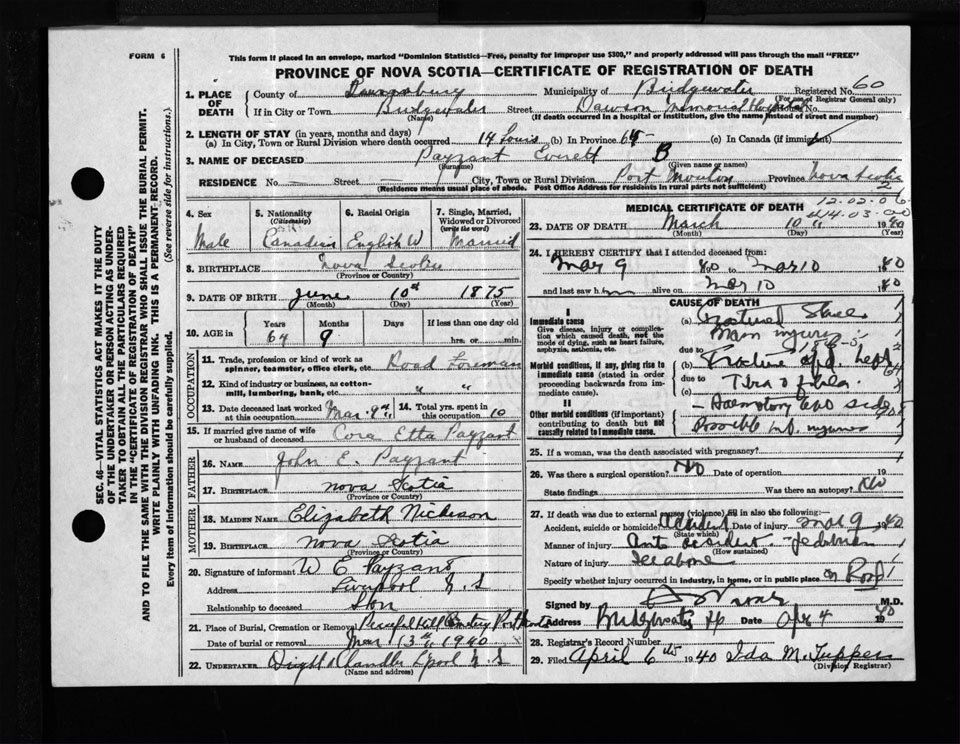 FORM 6
This form if placed in an envelope, marked "Dominion Statistics—Free, penalty for improper use $300," and properly addressed will pass through the mail "FREE"
PROVINCE OF NOVA SCOTIA—CERTIFICATE OF REGISTRATION OF DEATH
SEC. 46—VITAL STATISTICS ACT MAKES IT THE DUTY
OF THE UNDERTAKER OR PERSON ACTING AS UNDER-
TAKER TO OBTAIN ALL THE PARTICULARS REQUIRED
IN THE "CERTIFICATE OF REGISTRATION OF DEATH"
AND TO FILE THE SAME WITH THE DIVISION REGISTRAR WHO SHALL ISSUE THE BURIAL PERMIT.
WRITE PLAINLY WITH UNFADING INK. THIS IS A PERMANENT RECORD.
Every item of information should be carefully supplied. (See reverse side for instructions.)
1. PLACE OF DEATH
County of Lunenburg Municipality of Bridgewater Registered No. 60
(For use of Registrar General only)
If in City or Town Bridgewater Street Dawson Memorial Hospital No.
(Name) (If death occurred in a hospital or institution, give the name instead of street and number)
2. LENGTH OF STAY (in years, months and days)
(a) In City, Town or Rural Division where death occurred 14 hours (b) In Province 64 (c) In Canada (if immigrant)
3. NAME OF DECEASED Payzant Everett B
(Surname) (Given name or names)
RESIDENCE No. — Street — City, Town or Rural Division Port Mouton Province Nova Scotia
(Residence means usual place of abode. Post Office Address for residents in rural parts not sufficient)
4. Sex Male
5. Nationality (Citizenship) Canadian
6. Racial Origin English W
7. Single, Married, Widowed or Divorced (write the word) Married
8. BIRTHPLACE Nova Scotia
(Province or Country)
9. DATE OF BIRTH June 10th 1875
(Month) (Day) (Year)
10. AGE in Years 64 Months 9 Days If less than one day old hrs. or min.
OCCUPATION
11. Trade, profession or kind of work as spinner, teamster, office clerk, etc. Road Foreman
12. Kind of industry or business, as cotton-mill, lumbering, bank, etc. " "
13. Date deceased last worked at this occupation Mar. 9th
14. Total yrs. spent in this occupation 10
15. If married give name of wife or husband of deceased Cora Etta Payzant
FATHER
16. NAME John E. Payzant
17. BIRTHPLACE Nova Scotia
(Province or Country)
MOTHER
18. MAIDEN NAME Elizabeth Nickerson
19. BIRTHPLACE Nova Scotia
(Province or Country)
20. Signature of informant W E Payzant
Address Liverpool N. S
Relationship to deceased Son
21. Place of Burial, Cremation or Removal
Date of burial or removal Mar 13th 1940
22. UNDERTAKER Chandler L'pool N. S
(Name and address)
MEDICAL CERTIFICATE OF DEATH
23. DATE OF DEATH March 10th 1940
(Month) (Day) (Year)
24. I HEREBY CERTIFY that I attended deceased from
Mar 9 40 to Mar 10 1940
and last saw him alive on Mar 10 1940
CAUSE OF DEATH
I
Immediate cause
Give disease, injury or complication which caused death, not the mode of dying, such as heart failure, asphyxia, asthenia, etc.
(a) Fractured Skull
due to
Morbid conditions, if any, giving rise to immediate cause (stated in order proceeding backwards from immediate cause).
(b)
due to
(c)
II
Other morbid conditions (if important) contributing to death but not causally related to immediate cause.
Possible int. injuries
25. If a woman, was the death associated with pregnancy?
26. Was there a surgical operation? No Date of operation 19
State findings Was there an autopsy? No
27. If death was due to external causes (violence) fill in also the following:—
Accident, suicide or homicide Accident Date of injury Mar 9 1940
(State which)
Manner of injury Auto accident - Pedestrian
(How sustained)
Nature of injury See above
Specify whether injury occurred in industry, in home, or in public place on Road
Signed by M.D.
Address Bridgewater Date Apr 4 1940
28. Registrar's Record Number
29. Filed April 6th 1940 Ida M. Tupper
(Division Registrar)